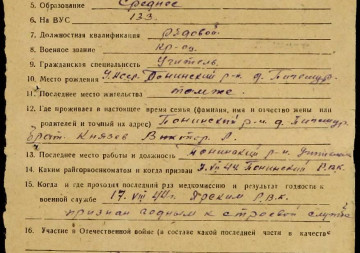 5. Образование Среднее
6. На ВУС 133
7. Должностная квалификация рядовой
8. Военное звание кр-ец
9. Гражданская специальность Учитель
10. Место рождения Понинский р-н д. Бичешур
11. Последнее место жительства там же
12. Где проживает в настоящее время семья (фамилия, имя и отчество жены или
родителей и точный их адрес) Понинский р-н д. Бичешур
брат Князев Виктор Л.
13. Последнее место работы и должность Понинский р-н
14. Каким райгорвоенкоматом и когда призван 9.VIII 44 Понинский Р.В.К.
15. Когда и где проходил последний раз медкомиссию и результат годности к
военной службе 17. VIII 44г. Р.В.К.
признан годным к строевой службе
16. Участие в Отечественной войне (в составе какой последней части и в качестве